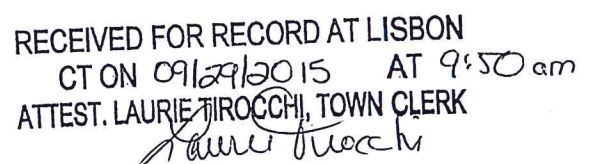 RECEIVED FOR RECORD AT LISBON
CT ON 09/29/2015 AT 9:50 am
ATTEST. LAURIE TIROCCHI, TOWN CLERK
Laurie Tirocchi